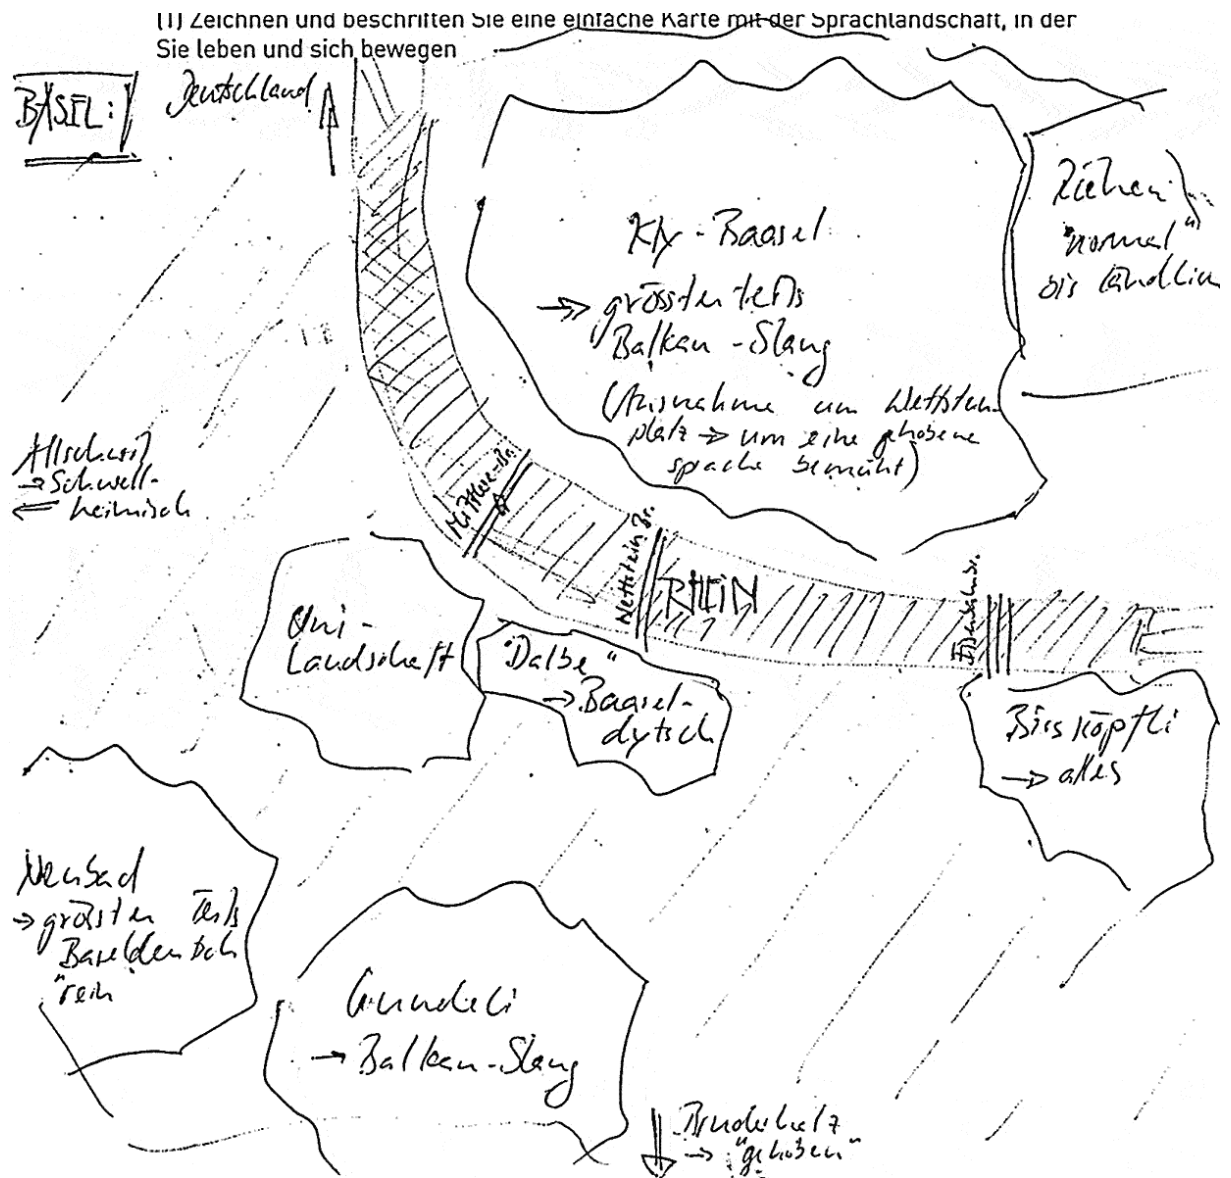 (1) Zeichnen und beschriften Sie eine einfache Karte mit der Sprachlandschaft, in der
Sie leben und sich bewegen
BASEL:
Deutschland
Kly-Baasel
grösstenteils
Balkan-Slang
(Ausnahme um Wettstein
platz → um eine gehobene
sprache bemüht)
Riehen
"normal"
bis ländlich
Allschwil
→ Schwell-
heimisch
Mittlere-Br.
Wettstein Br.
RHEIN
Eisenbahnbr.
Uni-
Landschaft
"Dalbe"
→ Baasel-
dytsch
→ alles
Neubad
→ grössten Teils
Baseldeutsch
"rein"
Gundeli
→ Balkan-Slang
Bruderholz
→ "gehoben"